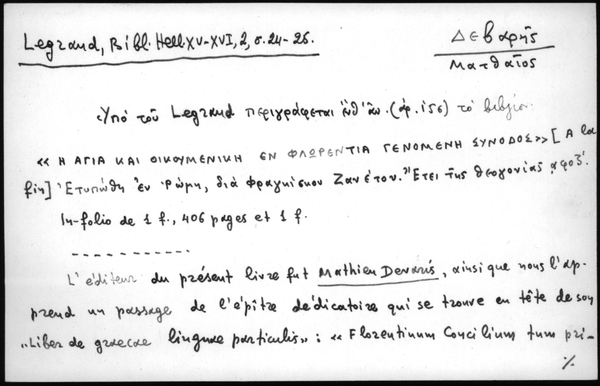 Legrand, Bibl. Hell. XV-XVI, 2, σ. 24-25.
Δεβαρῆς
Ματθαῖος
Ὑπό τοῦ Legrand περιγράφεται ἐνθ' ἀν. (ἀρ. 156) τό βιβλίο:
« Η ΑΓΙΑ ΚΑΙ ΟΙΚΟΥΜΕΝΙΚΗ ΕΝ ΦΛΩΡΕΝΤΙΑ ΓΕΝΟΜΕΝΗ ΣΥΝΟΔΟΣ» [A la
fin] Ἐτυπώθη ἐν Ῥώμῃ, διά Φραγκίσκου Ζανέτου. Ἔτει τῆς θεογονίας ͵αφοζ΄.
In-folio de 1 f., 406 pages et 1 f.
L'éditeur du présent livre fut Mathieu Devaris, ainsi que nous l'ap-
prend un passage de l'épître dédicatoire qui se trouve en tête de son
«Liber de graecae linguae particulis» : « Florentinum Concilium tum pri-
·/.